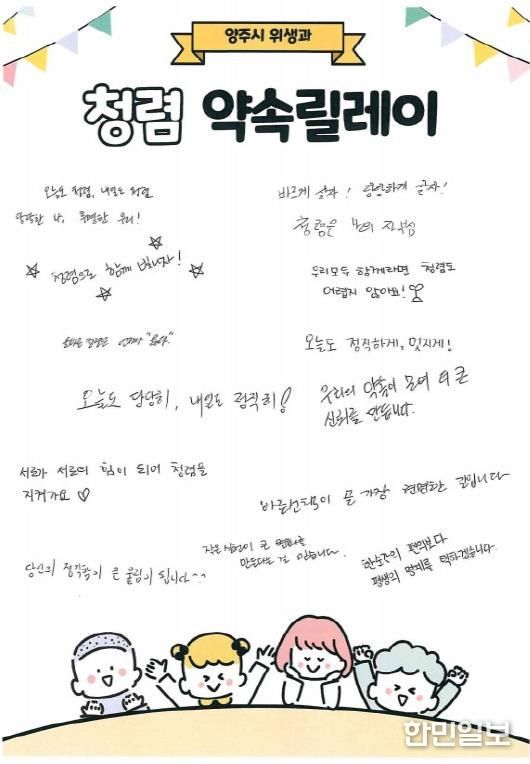 양주시 위생과
청렴 약속릴레이
오늘도 청렴, 내일도 청렴
당당한 나, 투명한 우리!
바르게 살자! 당당하게 살자!
청렴은 나의 자부심
청렴으로 함께 빛나자!
우리모두 함께라면 청렴도
어렵지 않아요!
오늘도 정직하게, 멋지게!
오늘도 당당히, 내일도 정직히!
우리의 약속이 모여 더 큰
신뢰를 만듭니다.
서로가 서로의 힘이 되어 청렴을
지켜가요 ♡
바른선택이 곧 가장 현명한 길입니다
작은 실천이 큰 변화를
만든다는 걸 믿습니다.
한순간의 편의보다
평생의 명예를 택하겠습니다.
당신의 정직함이 큰 울림이 됩니다~^
한민일보